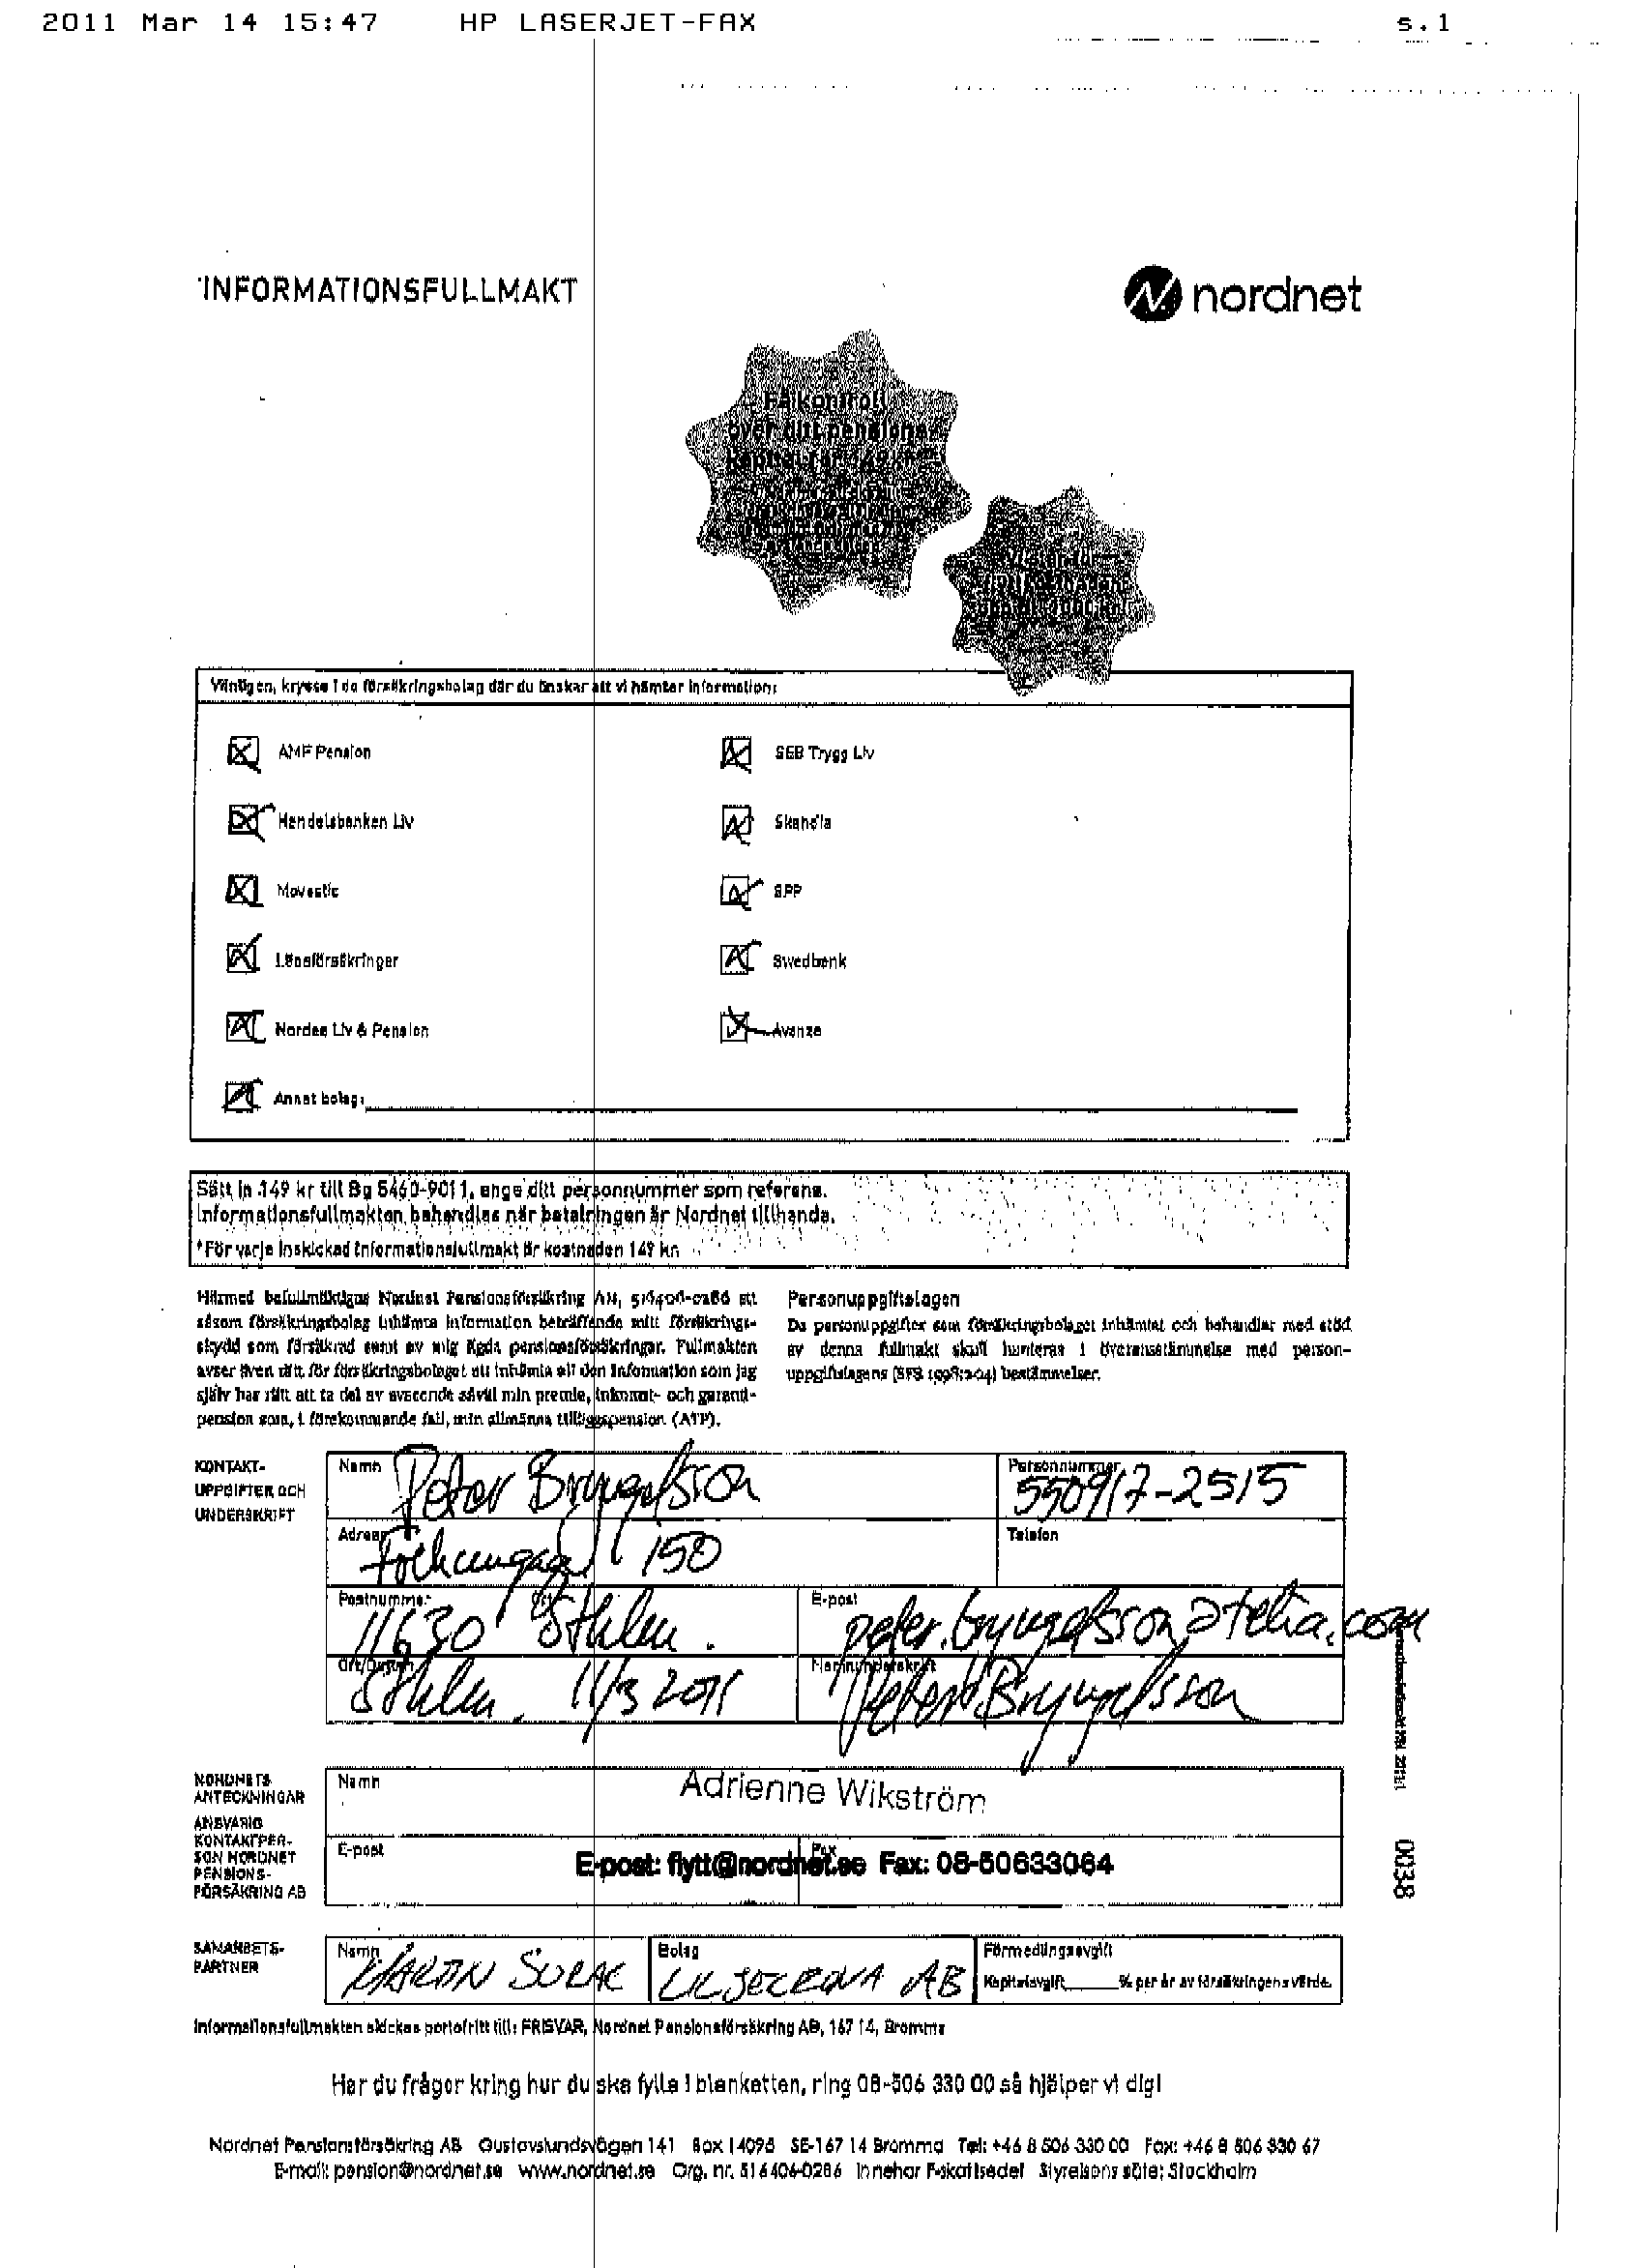 2011 Mar 14 15:47 HP LASERJET-FAX s.1
INFORMATIONSFULLMAKT
nordnet
Få kontroll
över ditt pensions-
kapital för 149 kr*
Vänligen, kryssa i de försäkringsbolag där du önskar att vi hämtar information:
AMF Pension
SEB Trygg Liv
Handelsbanken Liv
Skandia
Movestic
SPP
Länsförsäkringar
Swedbank
Nordea Liv & Pension
Avanza
Annat bolag:
Sätt in 149 kr till Bg 5460-9011, ange ditt personnummer som referens.
Informationsfullmakten behandlas när betalningen är Nordnet tillhanda.
*För varje inskickad informationsfullmakt är kostnaden 149 kr.
Härmed befullmäktigas Nordnet Pensionsförsäkring AB, 516406-0286 att
såsom försäkringsbolag inhämta information beträffande mitt försäkrings-
skydd som försäkrad samt av mig ägda pensionsförsäkringar. Fullmakten
avser även rätt för försäkringsbolaget att inhämta all den information som jag
själv har rätt att ta del av avseende såväl min premie, inkomst- och garanti-
pension som, i förekommande fall, min allmänna tilläggspension (ATP).
Personuppgiftslagen
De personuppgifter som försäkringsbolaget inhämtat och behandlar med stöd
av denna fullmakt skall hanteras i överensstämmelse med person-
uppgiftslagens (SFS 1998:204) bestämmelser.
KONTAKT-
UPPGIFTER OCH
UNDERSKRIFT
Namn Peter Bryngelsson
Personnummer 550917-2515
Adress 150
Telefon
Postnummer 11630 Ort Sthlm.
E-post peter.bryngelsson@telia.com
Ort/Datum Sthlm. 11/3 2011
Namnunderskrift Peter Bryngelsson
NORDNETS
ANTECKNINGAR
ANSVARIG
KONTAKTPER-
SON NORDNET
PENSIONS-
FÖRSÄKRING AB
Namn Adrienne Wikström
E-post Fax
E-post: flytt@nordnet.se Fax: 08-50633064
0038
SAMARBETS-
PARTNER
Namn MARTIN SURAC
Bolag LILJECRONA AB
Förmedlingsavgift
Kapitalavgift % per år av försäkringens värde.
Informationsfullmakten skickas portofritt till: FRISVAR, Nordnet Pensionsförsäkring AB, 167 14, Bromma
Har du frågor kring hur du ska fylla i blanketten, ring 08-506 330 00 så hjälper vi dig!
Nordnet Pensionsförsäkring AB Gustavslundsvägen 141 Box 14095 SE-167 14 Bromma Tel: +46 8 506 330 00 Fax: +46 8 506 330 67
E-mail: pension@nordnet.se www.nordnet.se Org. nr. 516406-0286 Innehar F-skattsedel Styrelsens säte: Stockholm